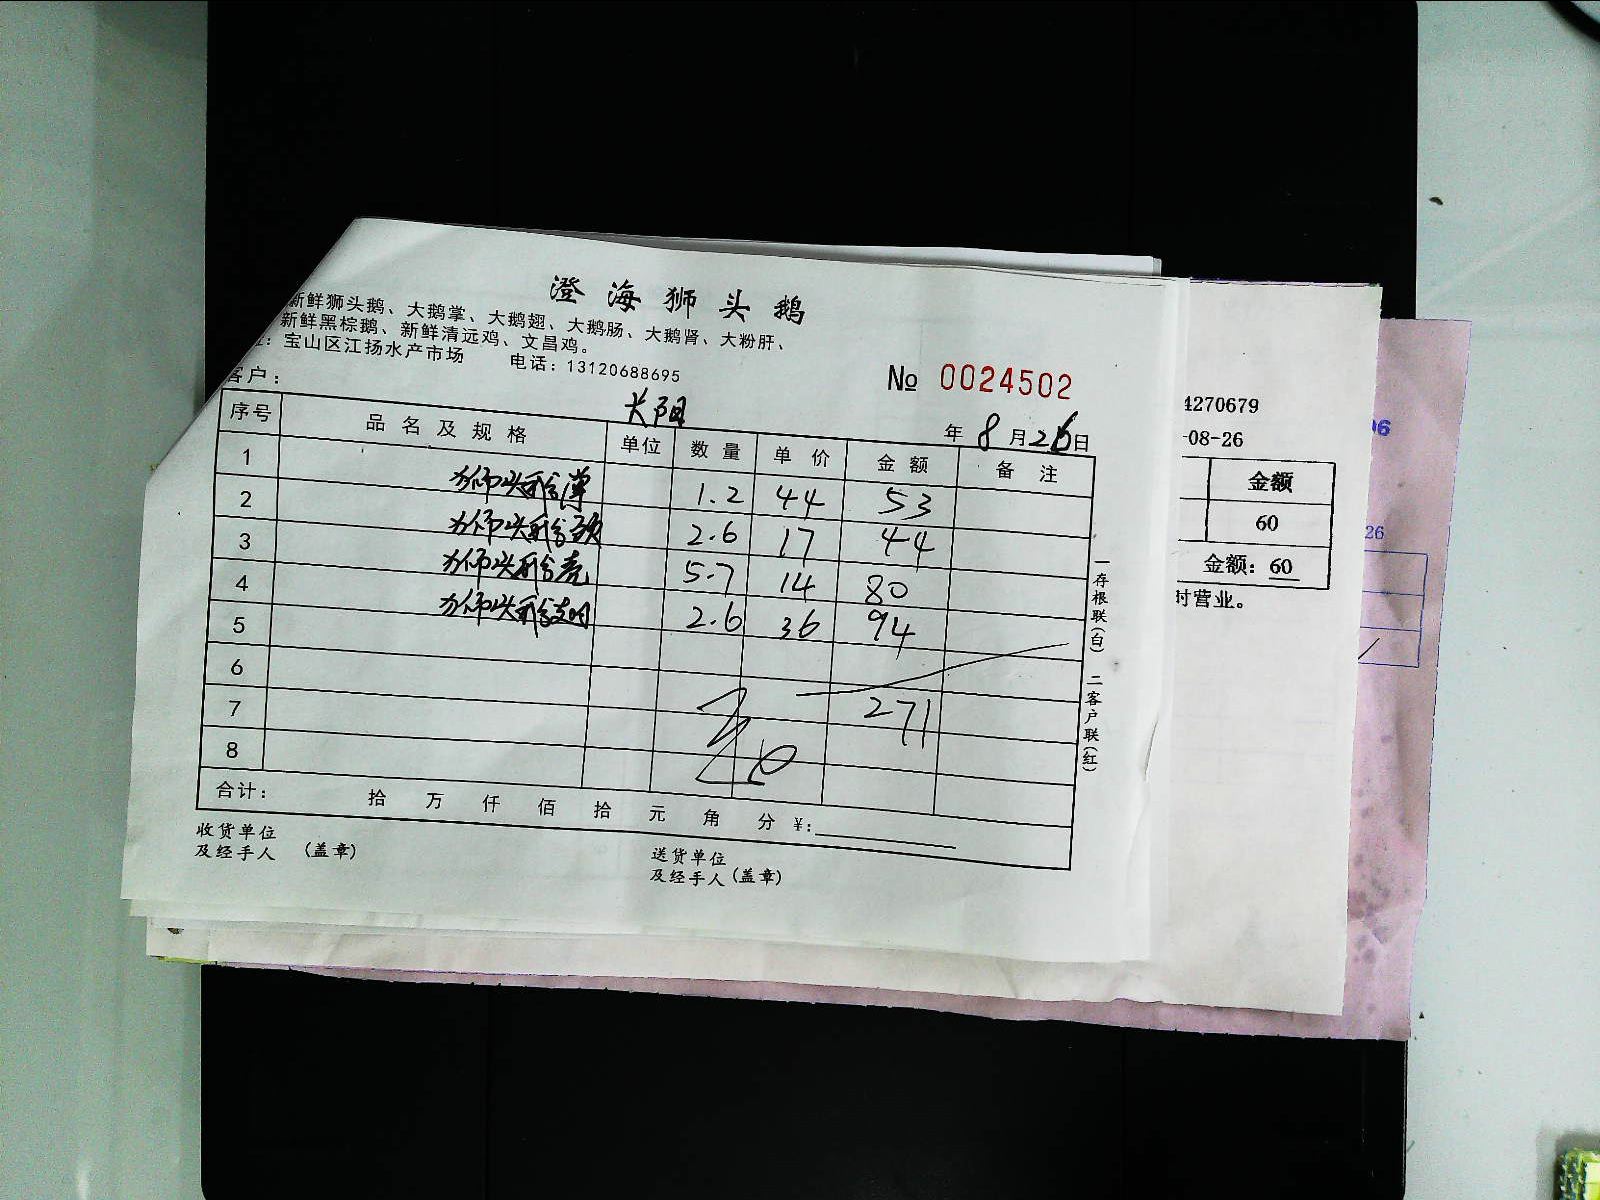 澄海狮头鹅
新鲜狮头鹅、大鹅掌、大鹅翅、大鹅肠、大鹅肾、大粉肝、
新鲜黑棕鹅、新鲜清远鸡、文昌鸡。
址：宝山区江扬水产市场 电话：13120688695
客户： 长阳
№ 0024502
年 8 月 26 日
序号 品名及规格 单位 数量 单价 金额 备注
1 狮头 1.2 44 53
2 狮头 2.6 17 44
3 狮头 5.7 14 80
4 狮头 2.6 36 94
5
6
7 271
8
合计： 拾 万 仟 佰 拾 元 角 分 ¥:
收货单位
及经手人 (盖章)
送货单位
及经手人 (盖章)
一存根联(白) 二客户联(红)
4270679
-08-26
金额
60
金额：60
时营业。
26